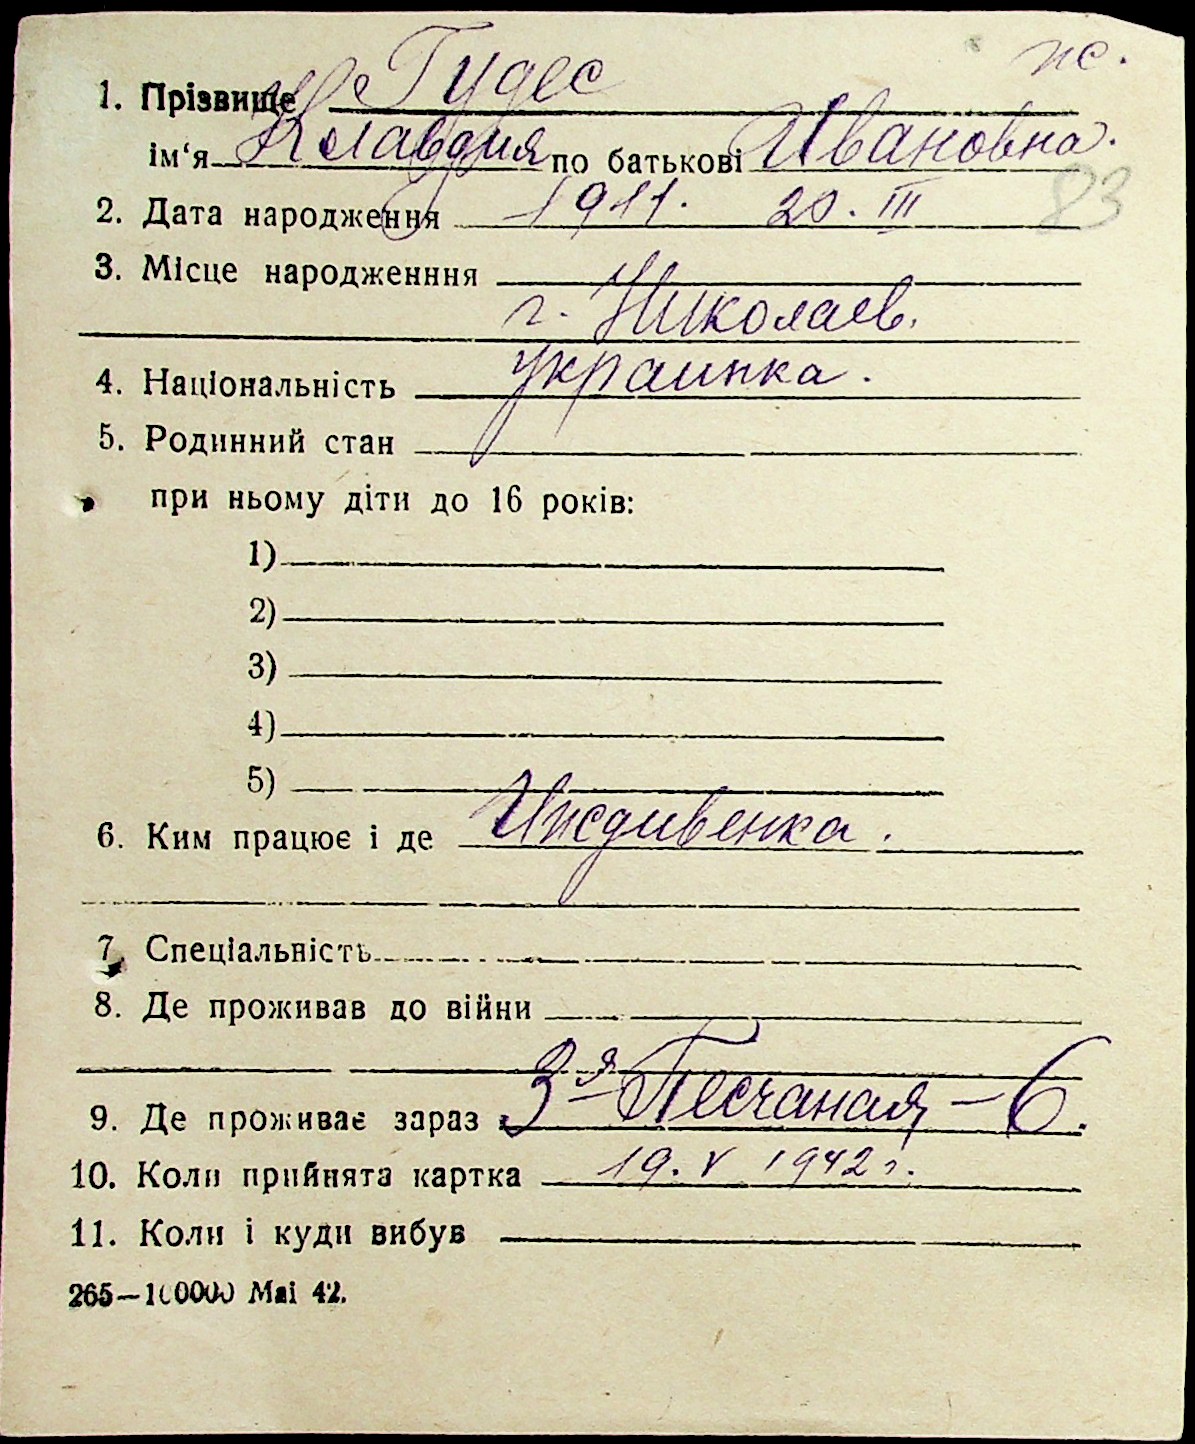 пс.
1. Прізвище Гудес
ім‘я Клавдия по батькові Ивановна.
2. Дата народження 1911. 20. III
83
3. Місце народженння
г. Николаев.
4. Національність украинка.
5. Родинний стан
при ньому діти до 16 років:
1)
2)
3)
4)
5)
6. Ким працює і де Иждивенка.
7. Спеціальність
8. Де проживав до війни
9. Де проживає зараз 3-я Песчаная – 6.
10. Коли прийнята картка 19. V 1942 г.
11. Коли і куди вибув
265—100000 Mai 42.